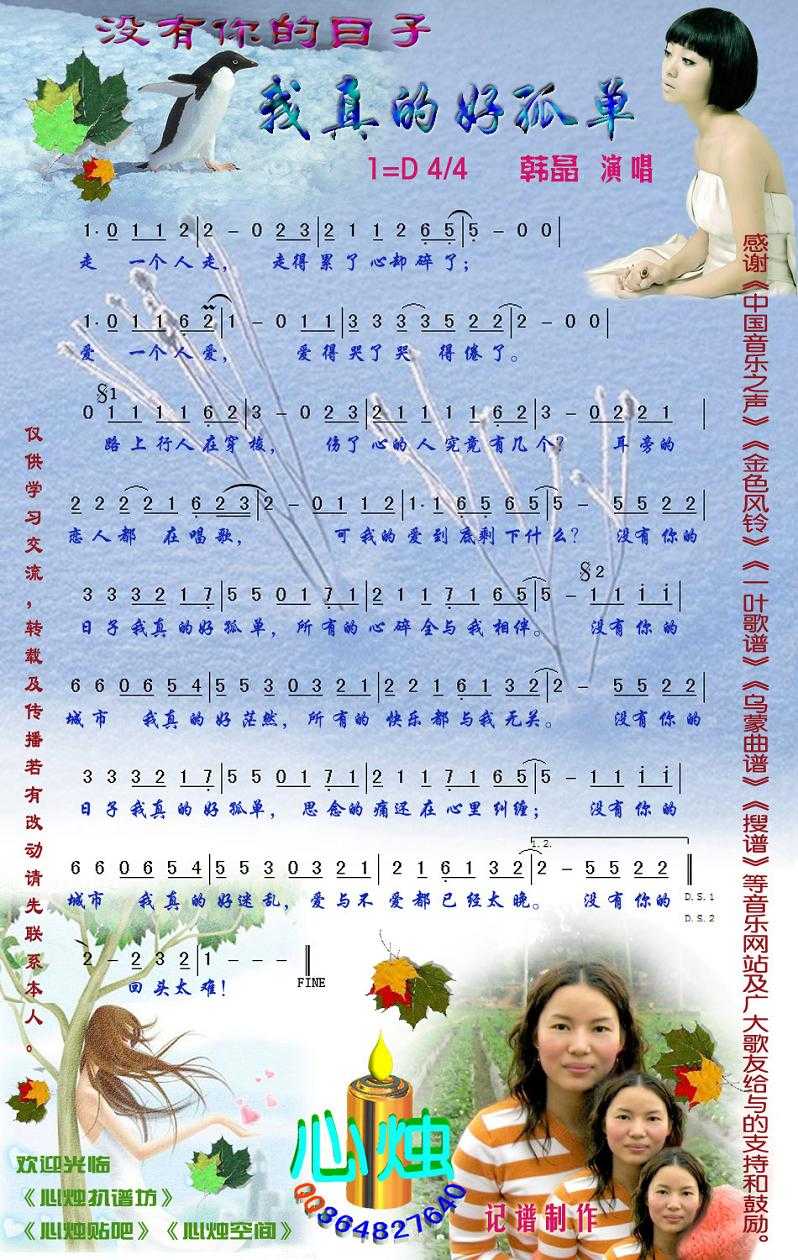 没有你的日子
我真的好孤单
1=D 4/4 韩晶 演唱
1· 0 1 1 2 | 2 - 0 2 3 | 2 1 1 2 6 5 | 5 - 0 0 |
走 一个人走， 走得累了心却碎了；
1· 0 1 1 6 2 | 1 - 0 1 1 | 3 3 3 3 5 2 2 | 2 - 0 0 |
爱 一个人爱， 爱得哭了哭 得倦了。
𝄋1
0 1 1 1 1 6 2 | 3 - 0 2 3 | 2 1 1 1 1 6 2 | 3 - 0 2 2 1 |
路上行人在穿梭， 伤了心的人究竟有几个？ 耳旁的
2 2 2 2 1 6 2 3 | 2 - 0 1 1 2 | 1· 1 6 5 6 5 | 5 - 5 5 2 2
恋人都 在唱歌， 可我的爱到底剩下什么？ 没有你的
𝄋2
3 3 3 2 1 7 | 5 5 0 1 7 1 | 2 1 1 7 1 6 5 | 5 - 1 1 i i |
日子我真的好孤单，所有的心碎全与我相伴。 没有你的
6 6 0 6 5 4 | 5 5 3 0 3 2 1 | 2 2 1 6 1 3 2 | 2 - 5 5 2 2 |
城市 我真的好茫然，所有的快乐都与我无关。 没有你的
3 3 3 2 1 7 | 5 5 0 1 7 1 | 2 1 1 7 1 6 5 | 5 - 1 1 i i |
日子我真的好孤单， 思念的痛还在心里纠缠； 没有你的
1.2.
6 6 0 6 5 4 | 5 5 3 0 3 2 1 | 2 1 6 1 3 2 | 2 - 5 5 2 2 ‖
城市 我真的好迷乱，爱与不爱都已经太晚。 没有你的
D.S.1
D.S.2
2 - 2 3 2 | 1 - - - ‖
回头太难！
FINE
仅供学习交流，转载及传播若有改动请先联系本人。
感谢《中国音乐之声》《金色风铃》《一叶歌谱》《乌蒙曲谱》《搜谱》等音乐网站及广大歌友给与的支持和鼓励。
心烛
QQ364827640
欢迎光临
《心烛扒谱坊》
《心烛贴吧》《心烛空间》
记谱制作